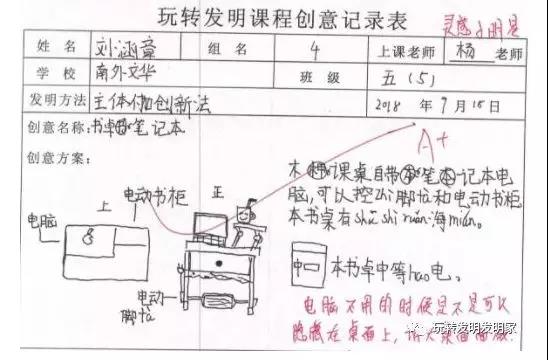 玩转发明课程创意记录表
灵感小明星
姓 名 刘涵章 组 名 4 上课老师 杨 老师
学 校 南外文华 班 级 五(5)
发明方法 主体附加创新法 2018 年 9月18日
创意名称:书桌笔记本
A+
创意方案:
本课桌自带笔记本电
脑,可以控zhi脚垃和电动书柜
本书桌有shū shì ruǎn 海mián。
电动书柜
上
正
电脑
中
本书桌中等hao电。
电动
脚垃
电脑不用的时候是不是可以
隐藏在桌面上,
玩转发明发明家